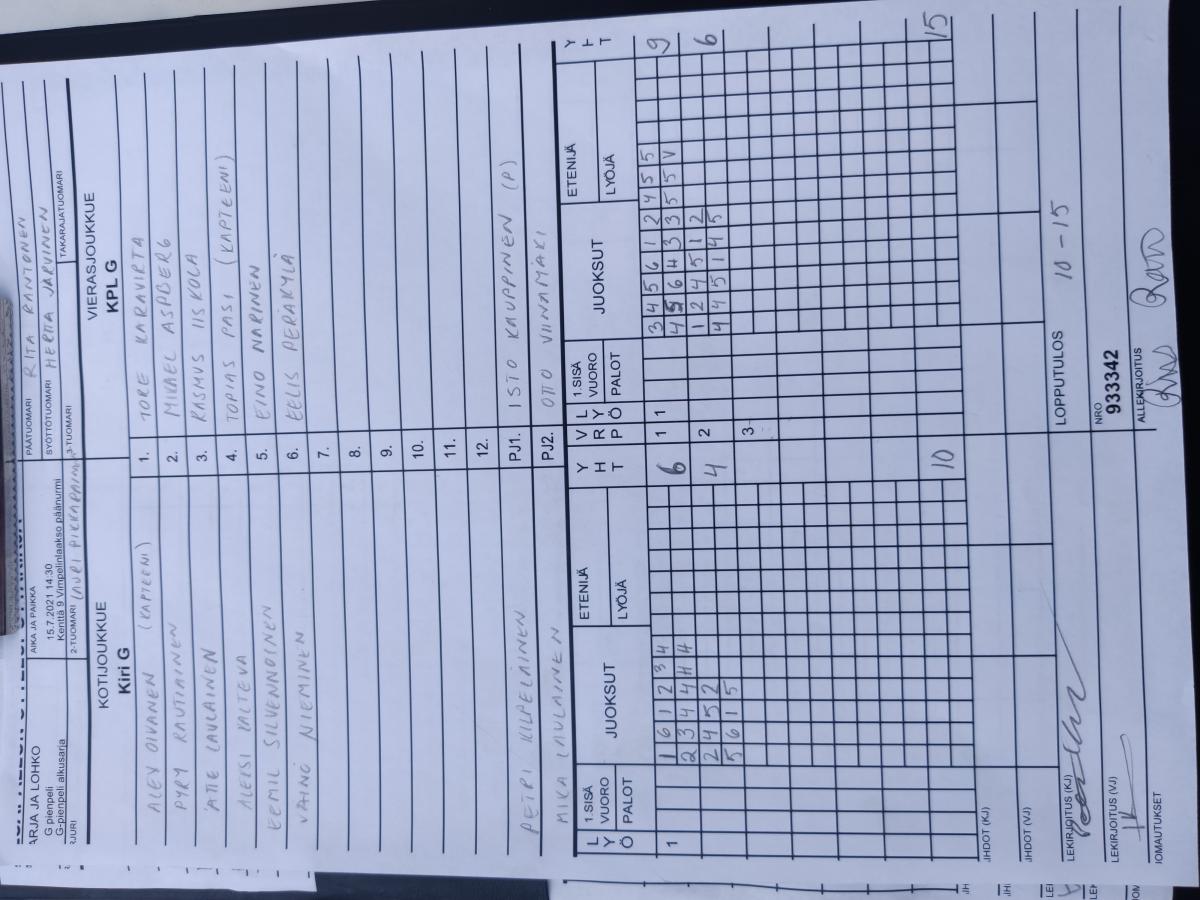 ARJA JA LOHKO
G pienpeli
G-pienpeli alkusarja
AIKA JA PAIKKA
15.7.2021 14:30
Kenttä 9 Vimpelinlaakso päänurmi
2-TUOMARI LAURI
PÄÄTUOMARI RITA RANTONEN
SYÖTTÖTUOMARI HERTTA JÄRVINEN
3-TUOMARI
TAKARAJATUOMARI
KOTIJOUKKUE
Kiri G
VIERASJOUKKUE
KPL G
ALEX OIVANEN (KAPTEENI) 1. TORE KARAVIRTA
PYRY RAUTIAINEN 2. MIKAEL ASPBERG
ATTE LAULAINEN 3. RASMUS IISKOLA
ALEKSI VALTEVA 4. TOPIAS PASI (KAPTEENI)
EEMIL SILVENNOINEN 5. EINO NARINEN
VÄINÖ NIEMINEN 6. EELIS PERÄKYLÄ
7.
8.
9.
10.
11.
12.
PETRI KILPELÄINEN PJ1. ISTO KAUPPINEN (P)
MIKA LAULAINEN PJ2. OTTO VIINAMÄKI
L Y Ö 1.SISÄ VUORO PALOT JUOKSUT ETENIJÄ LYÖJÄ Y H T V R P L Y Ö 1.SISÄ VUORO PALOT JUOKSUT ETENIJÄ LYÖJÄ Y H T
1 1 6 1 2 3 4 6 1 1 3 4 5 6 1 2 4 5 5 9
2 3 4 4 4 4 4 5 6 4 3 3 5 5 V
2 4 5 2 4 2 1 2 4 5 1 2 6
5 6 1 5 4 4 5 1 4 5
3
10 15
IHDOT (KJ)
IHDOT (VJ)
LEKIRJOITUS (KJ)
LOPPUTULOS 10-15
LEKIRJOITUS (VJ)
NRO
933342
IOMAUTUKSET
ALLEKIRJOITUS